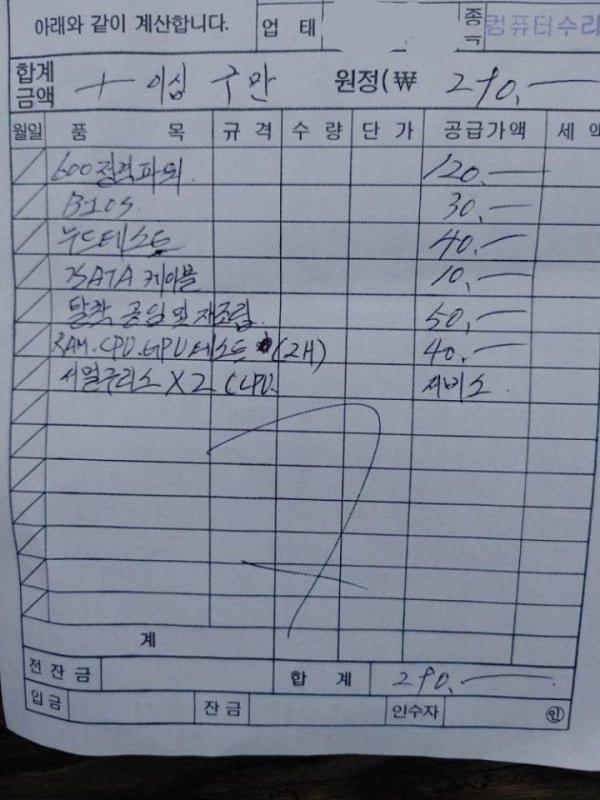 아래와 같이 계산합니다. 업 태 종 컴퓨터수리
합계
금액 이십 구만 원정(₩ 290.—
월일 품 목 규 격 수 량 단 가 공급가액 세 액
600정격파워. 120.—
BIOS 30.—
누드테스트 40.—
SATA 케이블 10.—
탈착 공임 및 재조립. 50.—
RAM.CPU.GPU테스트 (2H) 40.—
서멀구리스 X2 (CPU. 서비스.
계
전 잔 금 합 계 290.—
입금 잔 금 인수자 ㊞